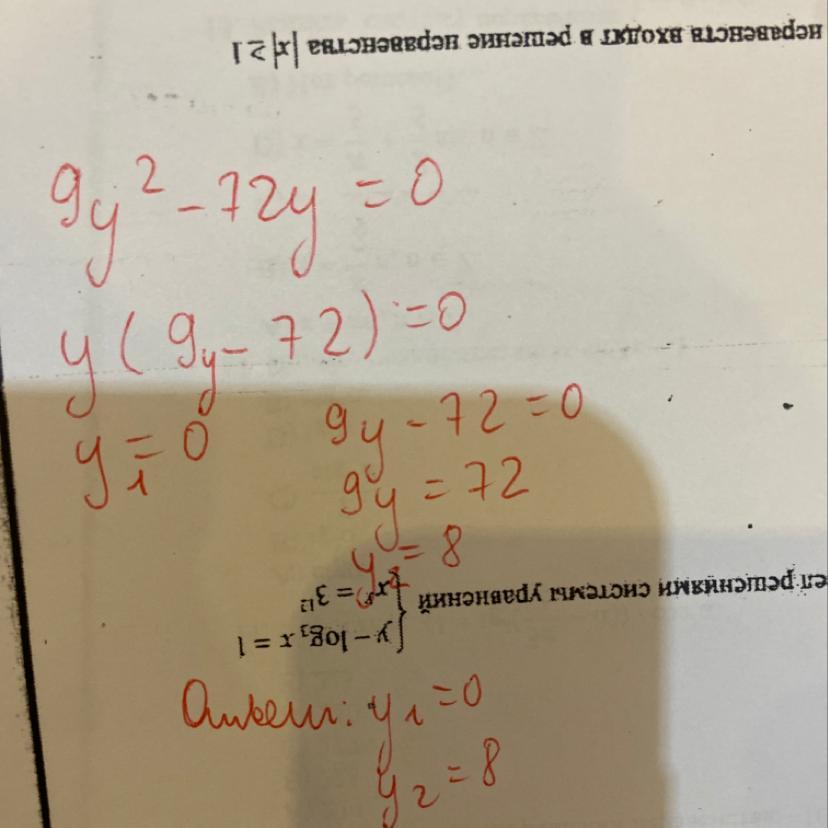 неравенств входят в решение неравенства |x| ≥ 1
9y² - 72y = 0
y(9y - 72) = 0
y₁ = 0
9y - 72 = 0
9y = 72
y₂ = 8
решениями системы уравнений
{ y - log₃ x = 1
= 3¹²
Ответ: y₁ = 0
y₂ = 8